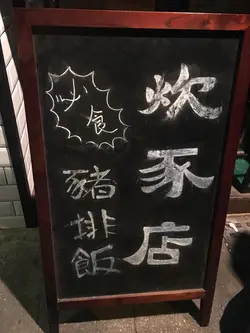 炊豕店
小食
豬排飯